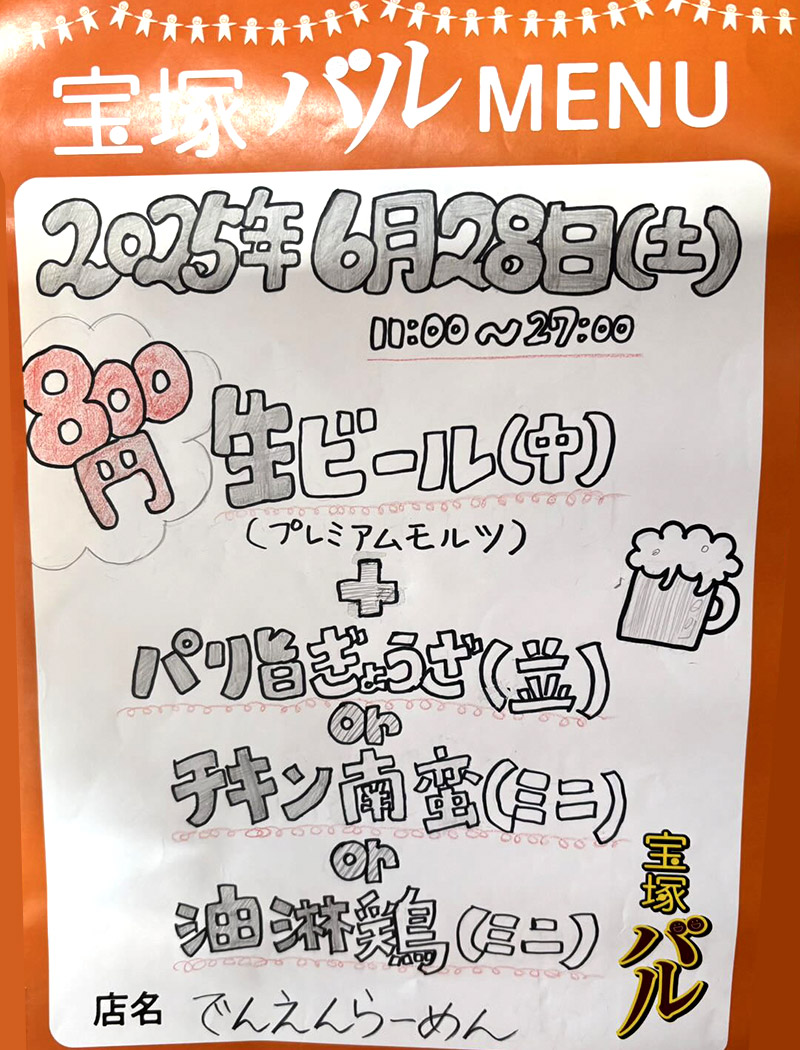 宝塚バルMENU
2025年6月28日(土)
11:00〜27:00
800
円
生ビール(中)
(プレミアムモルツ)
+
パリ旨ぎょうざ(並)
or
チキン南蛮(ミニ)
or
油淋鶏(ミニ)
宝塚
バル
店名 でんえんらーめん